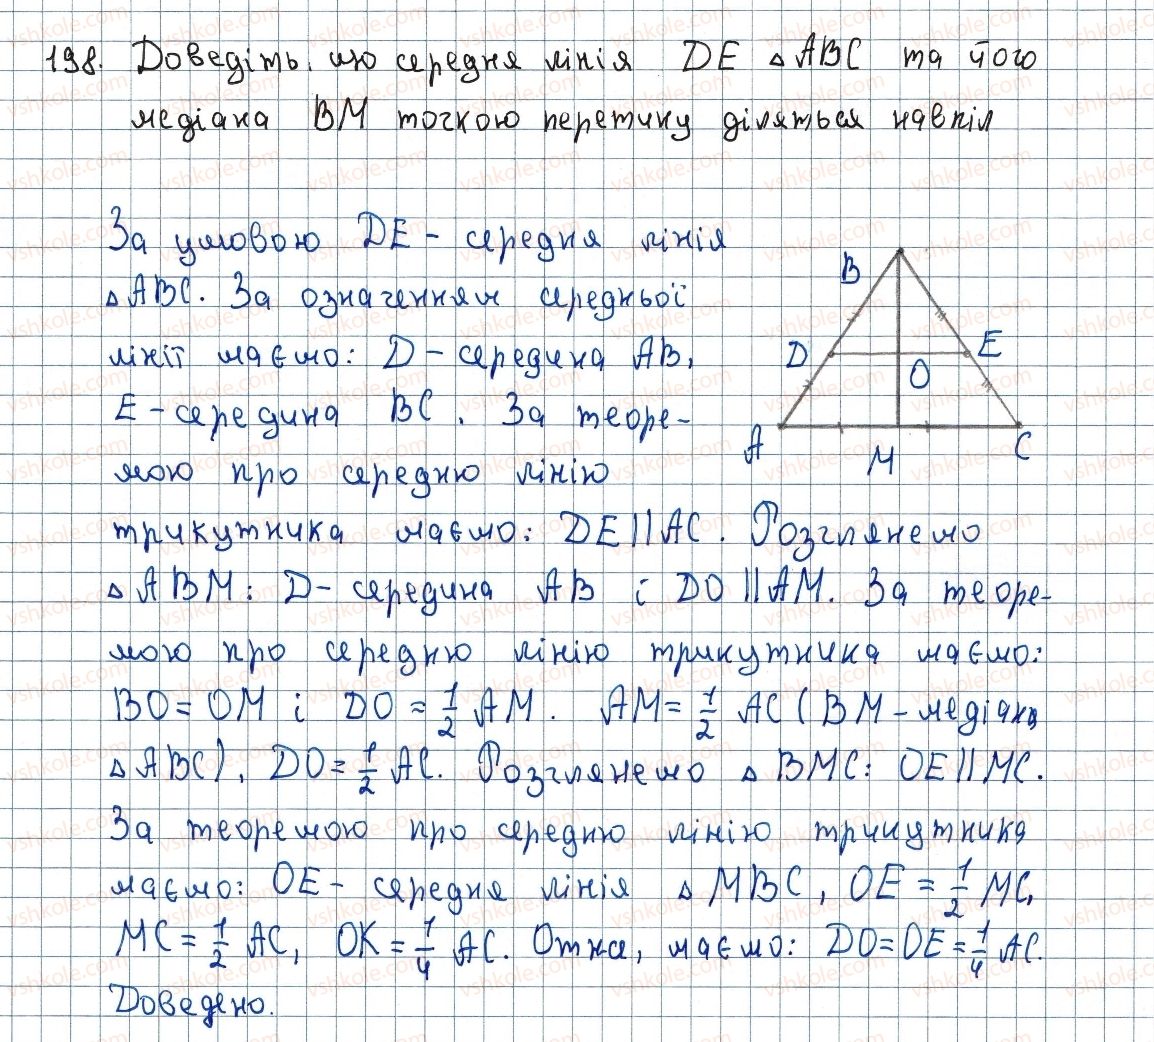 198. Доведіть, що середня лінія DE △ ABC та його
медіана BM точкою перетину діляться навпіл
За умовою DE - середня лінія
△ ABC. За означенням середньої
лінії маємо: D - середина AB,
E - середина BC. За теоре-
мою про середню лінію
трикутника маємо: DE || AC. Розглянемо
△ ABM: D - середина AB і DO || AM. За теоре-
мою про середню лінію трикутника маємо:
BO = OM і DO = 1/2 AM. AM = 1/2 AC (BM - медіана
△ ABC), DO = 1/2 AC. Розглянемо △ BMC: OE || MC.
За теоремою про середню лінію трикутника
маємо: OE - середня лінія △ MBC, OE = 1/2 MC,
MC = 1/2 AC, OK = 1/4 AC. Отже, маємо: DO = OE = 1/4 AC.
Доведено.
B
D
E
O
A
M
C
vshkole.com